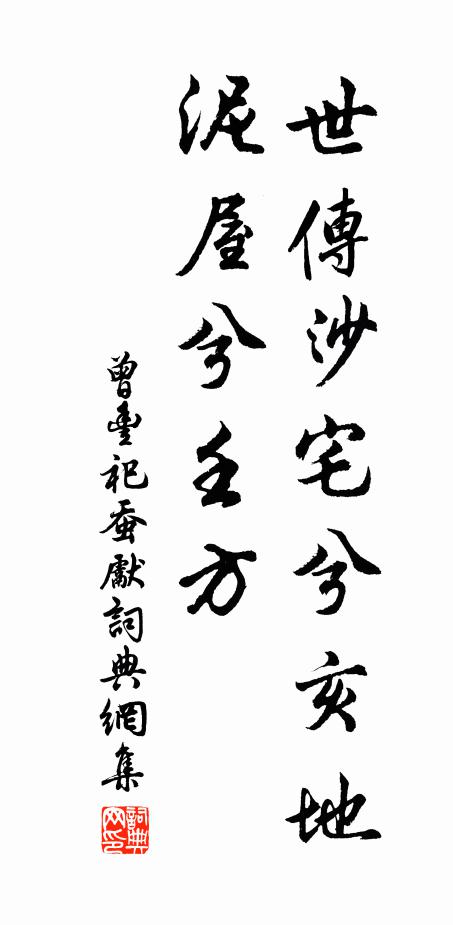 世傳沙宅兮亥地
泥屋兮壬方
曾豐祀蚕獻詞典網集
詞典網印